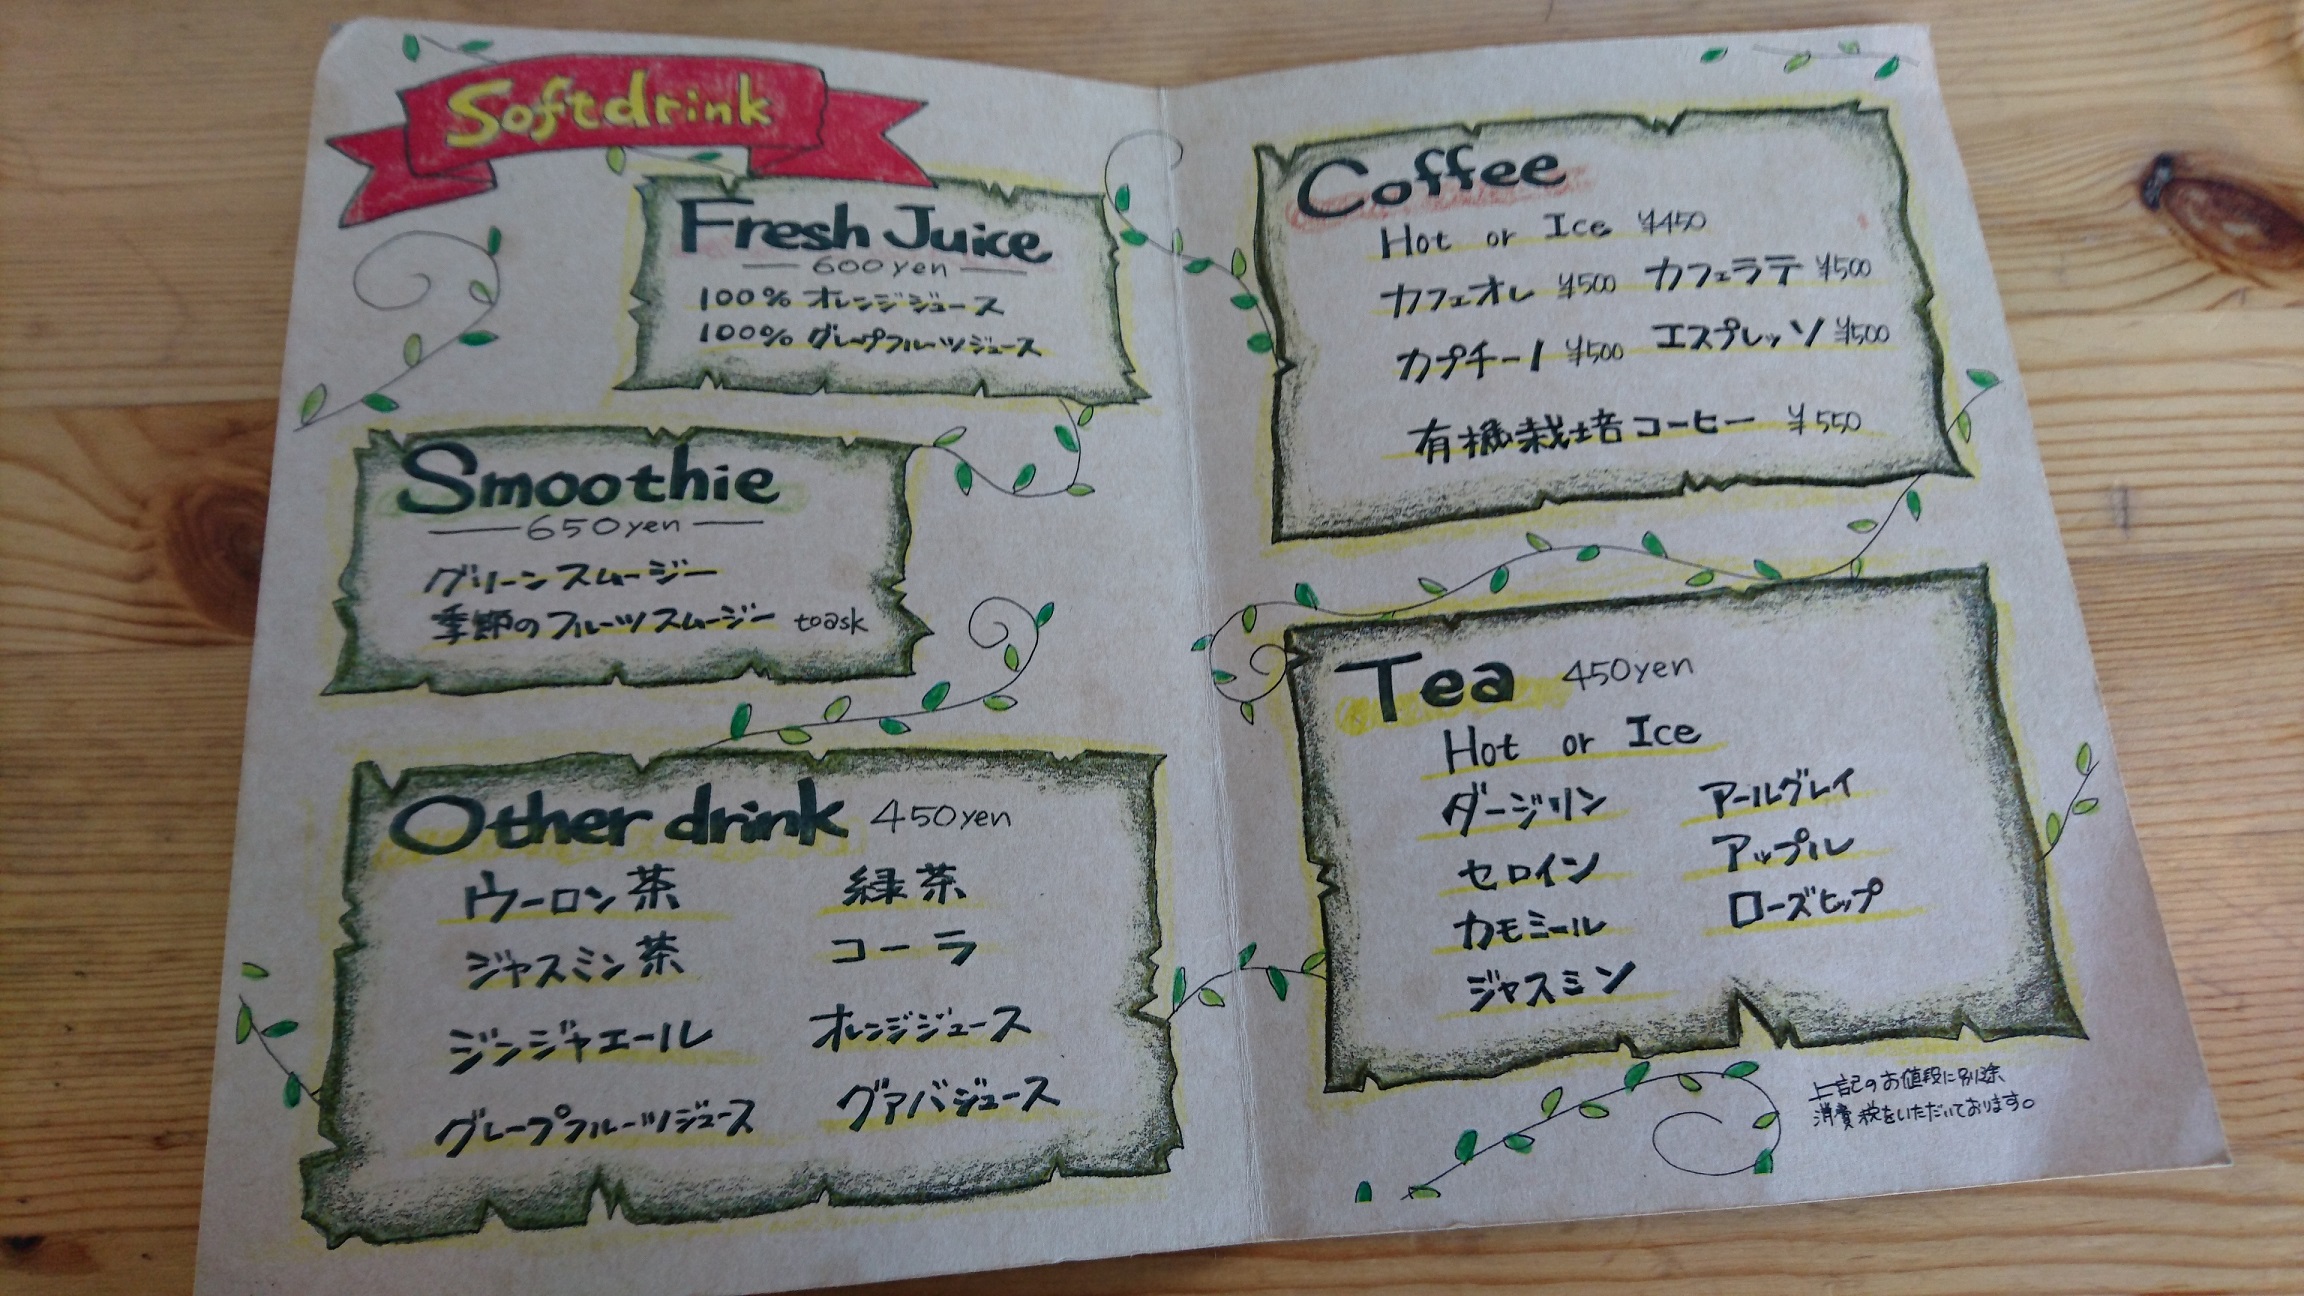 Softdrink
Fresh Juice
600yen
100% オレンジジュース
100% グレープフルーツジュース
Smoothie
650yen
グリーンスムージー
季節のフルーツスムージー toask
Other drink 450yen
ウーロン茶 緑茶
ジャスミン茶 コーラ
ジンジャエール オレンジジュース
グレープフルーツジュース グァバジュース
Coffee
Hot or Ice ¥450
カフェオレ ¥500 カフェラテ ¥500
カプチーノ ¥500 エスプレッソ ¥500
有機栽培コーヒー ¥550
Tea 450yen
Hot or Ice
ダージリン アールグレイ
セロイン アップル
カモミール ローズヒップ
ジャスミン
上記のお値段に別途
消費税をいただいております。